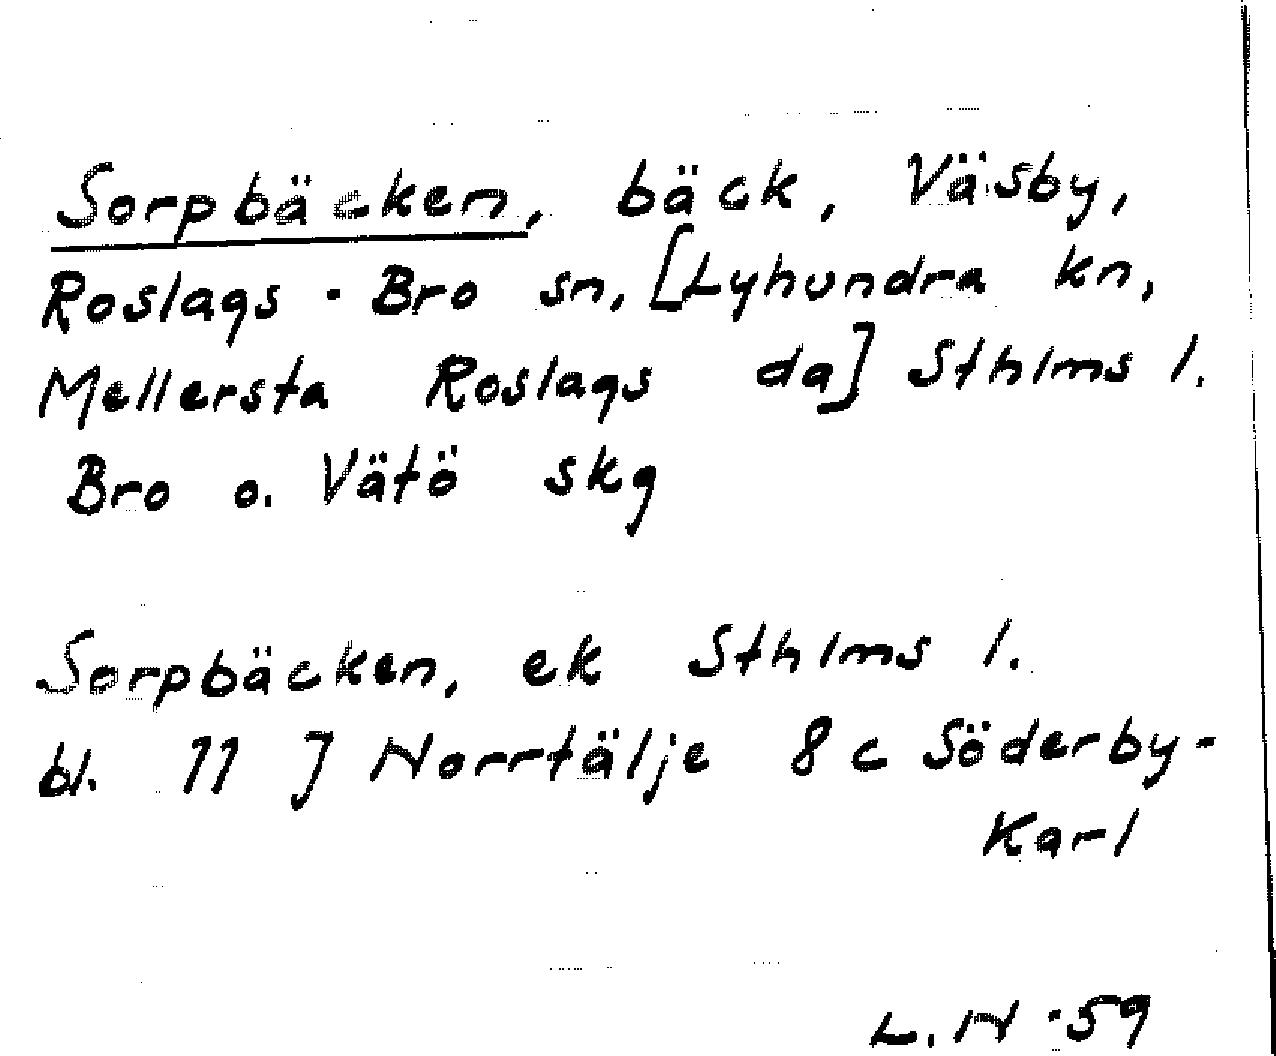 Sorpbäcken, bäck, Väsby,
Roslags-Bro sn, [Lyhundra kn,
Mellersta Roslags da] Sthlms l.
Bro o. Vätö skg
Sorpbäcken, ek Sthlms l.
bl. 11 J Norrtälje 8 c Söderby-
Karl
L. N -59